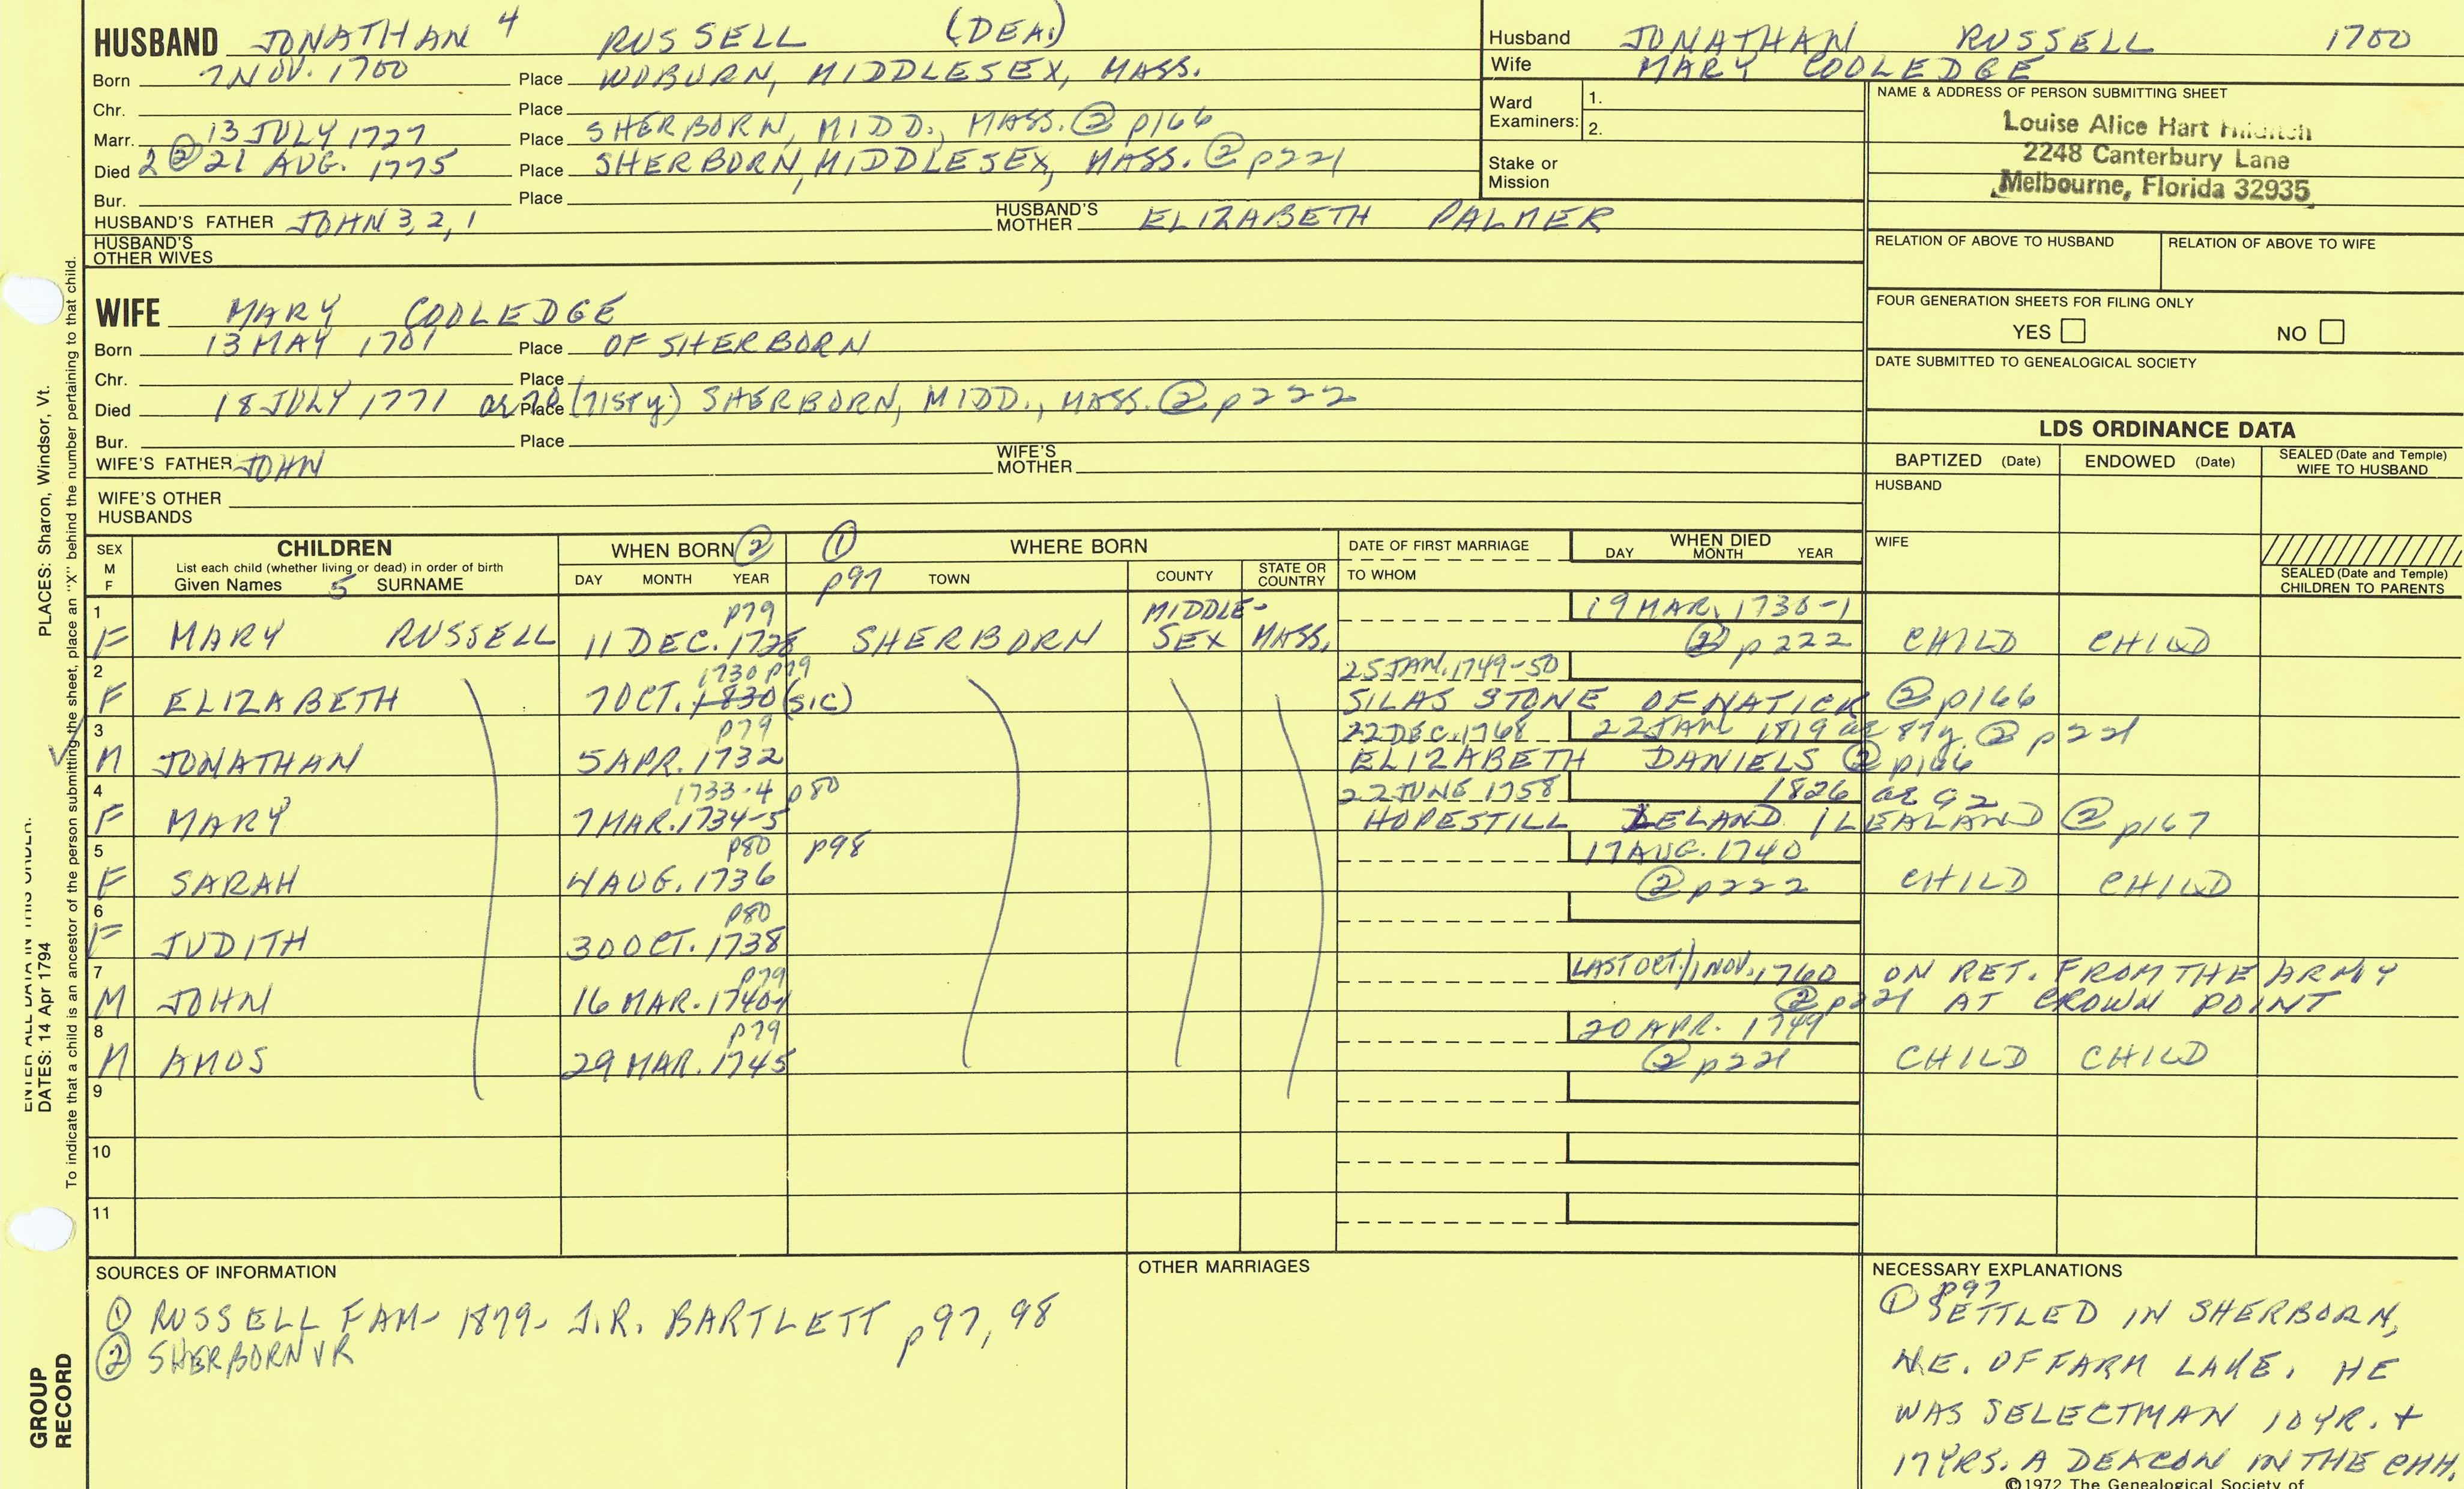 HUSBAND JONATHAN 4 RUSSELL (DEA.)
Born 7 NOV. 1700 Place WOBURN, MIDDLESEX, MASS.
Chr. Place
Marr. 13 JULY 1727 Place SHERBORN, MIDD., MASS. ② p166
Died 2 ② 21 AUG. 1775 Place SHERBORN, MIDDLESEX, MASS. ② p221
Bur. Place
HUSBAND'S FATHER JOHN 3, 2, 1 HUSBAND'S MOTHER ELIZABETH PALMER
HUSBAND'S OTHER WIVES
Husband JONATHAN RUSSELL 1700
Wife MARY COOLEDGE
Ward Examiners: 1.
2.
Stake or Mission
NAME & ADDRESS OF PERSON SUBMITTING SHEET
Louise Alice Hart
2248 Canterbury Lane
Melbourne, Florida 32935
RELATION OF ABOVE TO HUSBAND RELATION OF ABOVE TO WIFE
FOUR GENERATION SHEETS FOR FILING ONLY
YES NO
DATE SUBMITTED TO GENEALOGICAL SOCIETY
WIFE MARY COOLEDGE
Born 13 MAY 1701 Place OF SHERBORN
Chr. Place
Died 18 JULY 1771 ae 70 Place (71st y.) SHERBORN, MIDD., MASS. ② p222
Bur. Place
WIFE'S FATHER JOHN WIFE'S MOTHER
WIFE'S OTHER HUSBANDS
LDS ORDINANCE DATA
BAPTIZED (Date) ENDOWED (Date) SEALED (Date and Temple) WIFE TO HUSBAND
HUSBAND
WIFE
SEALED (Date and Temple) CHILDREN TO PARENTS
SEX M F
CHILDREN
List each child (whether living or dead) in order of birth
Given Names 5 SURNAME
WHEN BORN ② DAY MONTH YEAR
① p97 WHERE BORN TOWN COUNTY STATE OR COUNTRY
DATE OF FIRST MARRIAGE TO WHOM
WHEN DIED DAY MONTH YEAR
1 p79 MIDDLE- 19 MAR. 1730-1
F MARY RUSSELL 11 DEC. 1728 SHERBORN SEX MASS. ② p222 CHILD CHILD
2 1730 p79 25 JAN. 1749-50
F ELIZABETH 7 OCT. 1830 (SIC) SILAS STONE OF NATICK ② p166
3 p79 22 DEC. 1768 22 JAN 1819 ae 87y. ② p221
M JONATHAN 5 APR. 1732 ELIZABETH DANIELS ② p166
4 1733-4 p80 22 JUNE 1758 1826 ae 92
F MARY 7 MAR. 1734-5 HOPESTILL LELAND /LEALAND ② p167
5 p80 p98 17 AUG. 1740
F SARAH 4 AUG. 1736 ② p222 CHILD CHILD
6 p80
F JUDITH 30 OCT. 1738
7 p79 LAST OCT./1 NOV. 1760 ON RET. FROM THE ARMY
M JOHN 16 MAR. 1740-1 ② p221 AT CROWN POINT
8 p79 20 APR. 1749
M AMOS 29 MAR. 1745 ② p221 CHILD CHILD
9
10
11
SOURCES OF INFORMATION
① RUSSELL FAM- 1879- J.R. BARTLETT p97, 98
② SHERBORN VR
OTHER MARRIAGES
NECESSARY EXPLANATIONS
① p97
SETTLED IN SHERBORN,
N.E. OF FARM LAKE. HE
WAS SELECTMAN 10 YR. +
17 YRS. A DEACON IN THE CHH.
©1972 The Genealogical Society of
ENTER ALL DATA IN THIS ORDER:
DATES: 14 Apr 1794 PLACES: Sharon, Windsor, Vt.
To indicate that a child is an ancestor of the person submitting the sheet, place an "X" behind the number pertaining to that child.
GROUP
RECORD